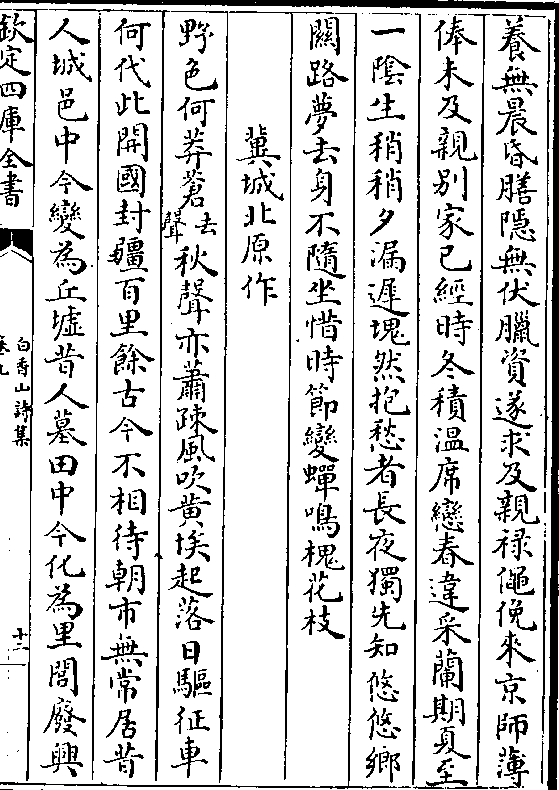 養無晨昏膳隱無伏臘資遂求及親禄僶俛來京師薄
俸未及親別家已經時冬積溫席戀春違采蘭期夏至
一隂生稍稍夕漏遲塊然抱愁者長夜獨先知悠悠鄉
關路夢去身不隨坐惜時節變蟬鳴槐花枝
冀城北原作
野色何莽蒼去聲秋聲亦蕭疎風吹黄埃起落日驅征車
何代此開國封疆百里餘古今不相待朝市無常居昔
人城邑中今變為丘墟昔人墓田中今化為里閭廢興
欽定四庫全書
白香山詩集
卷九
十二